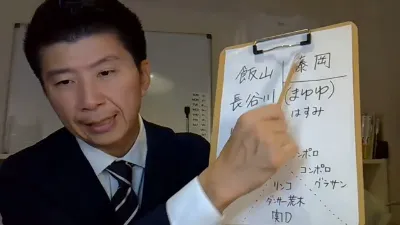 飯山 藤岡
長谷川 (まゆゆ)
はすみ
コンポロ
コンポロ
リンコ グラサン
ダーサー荒木
実D